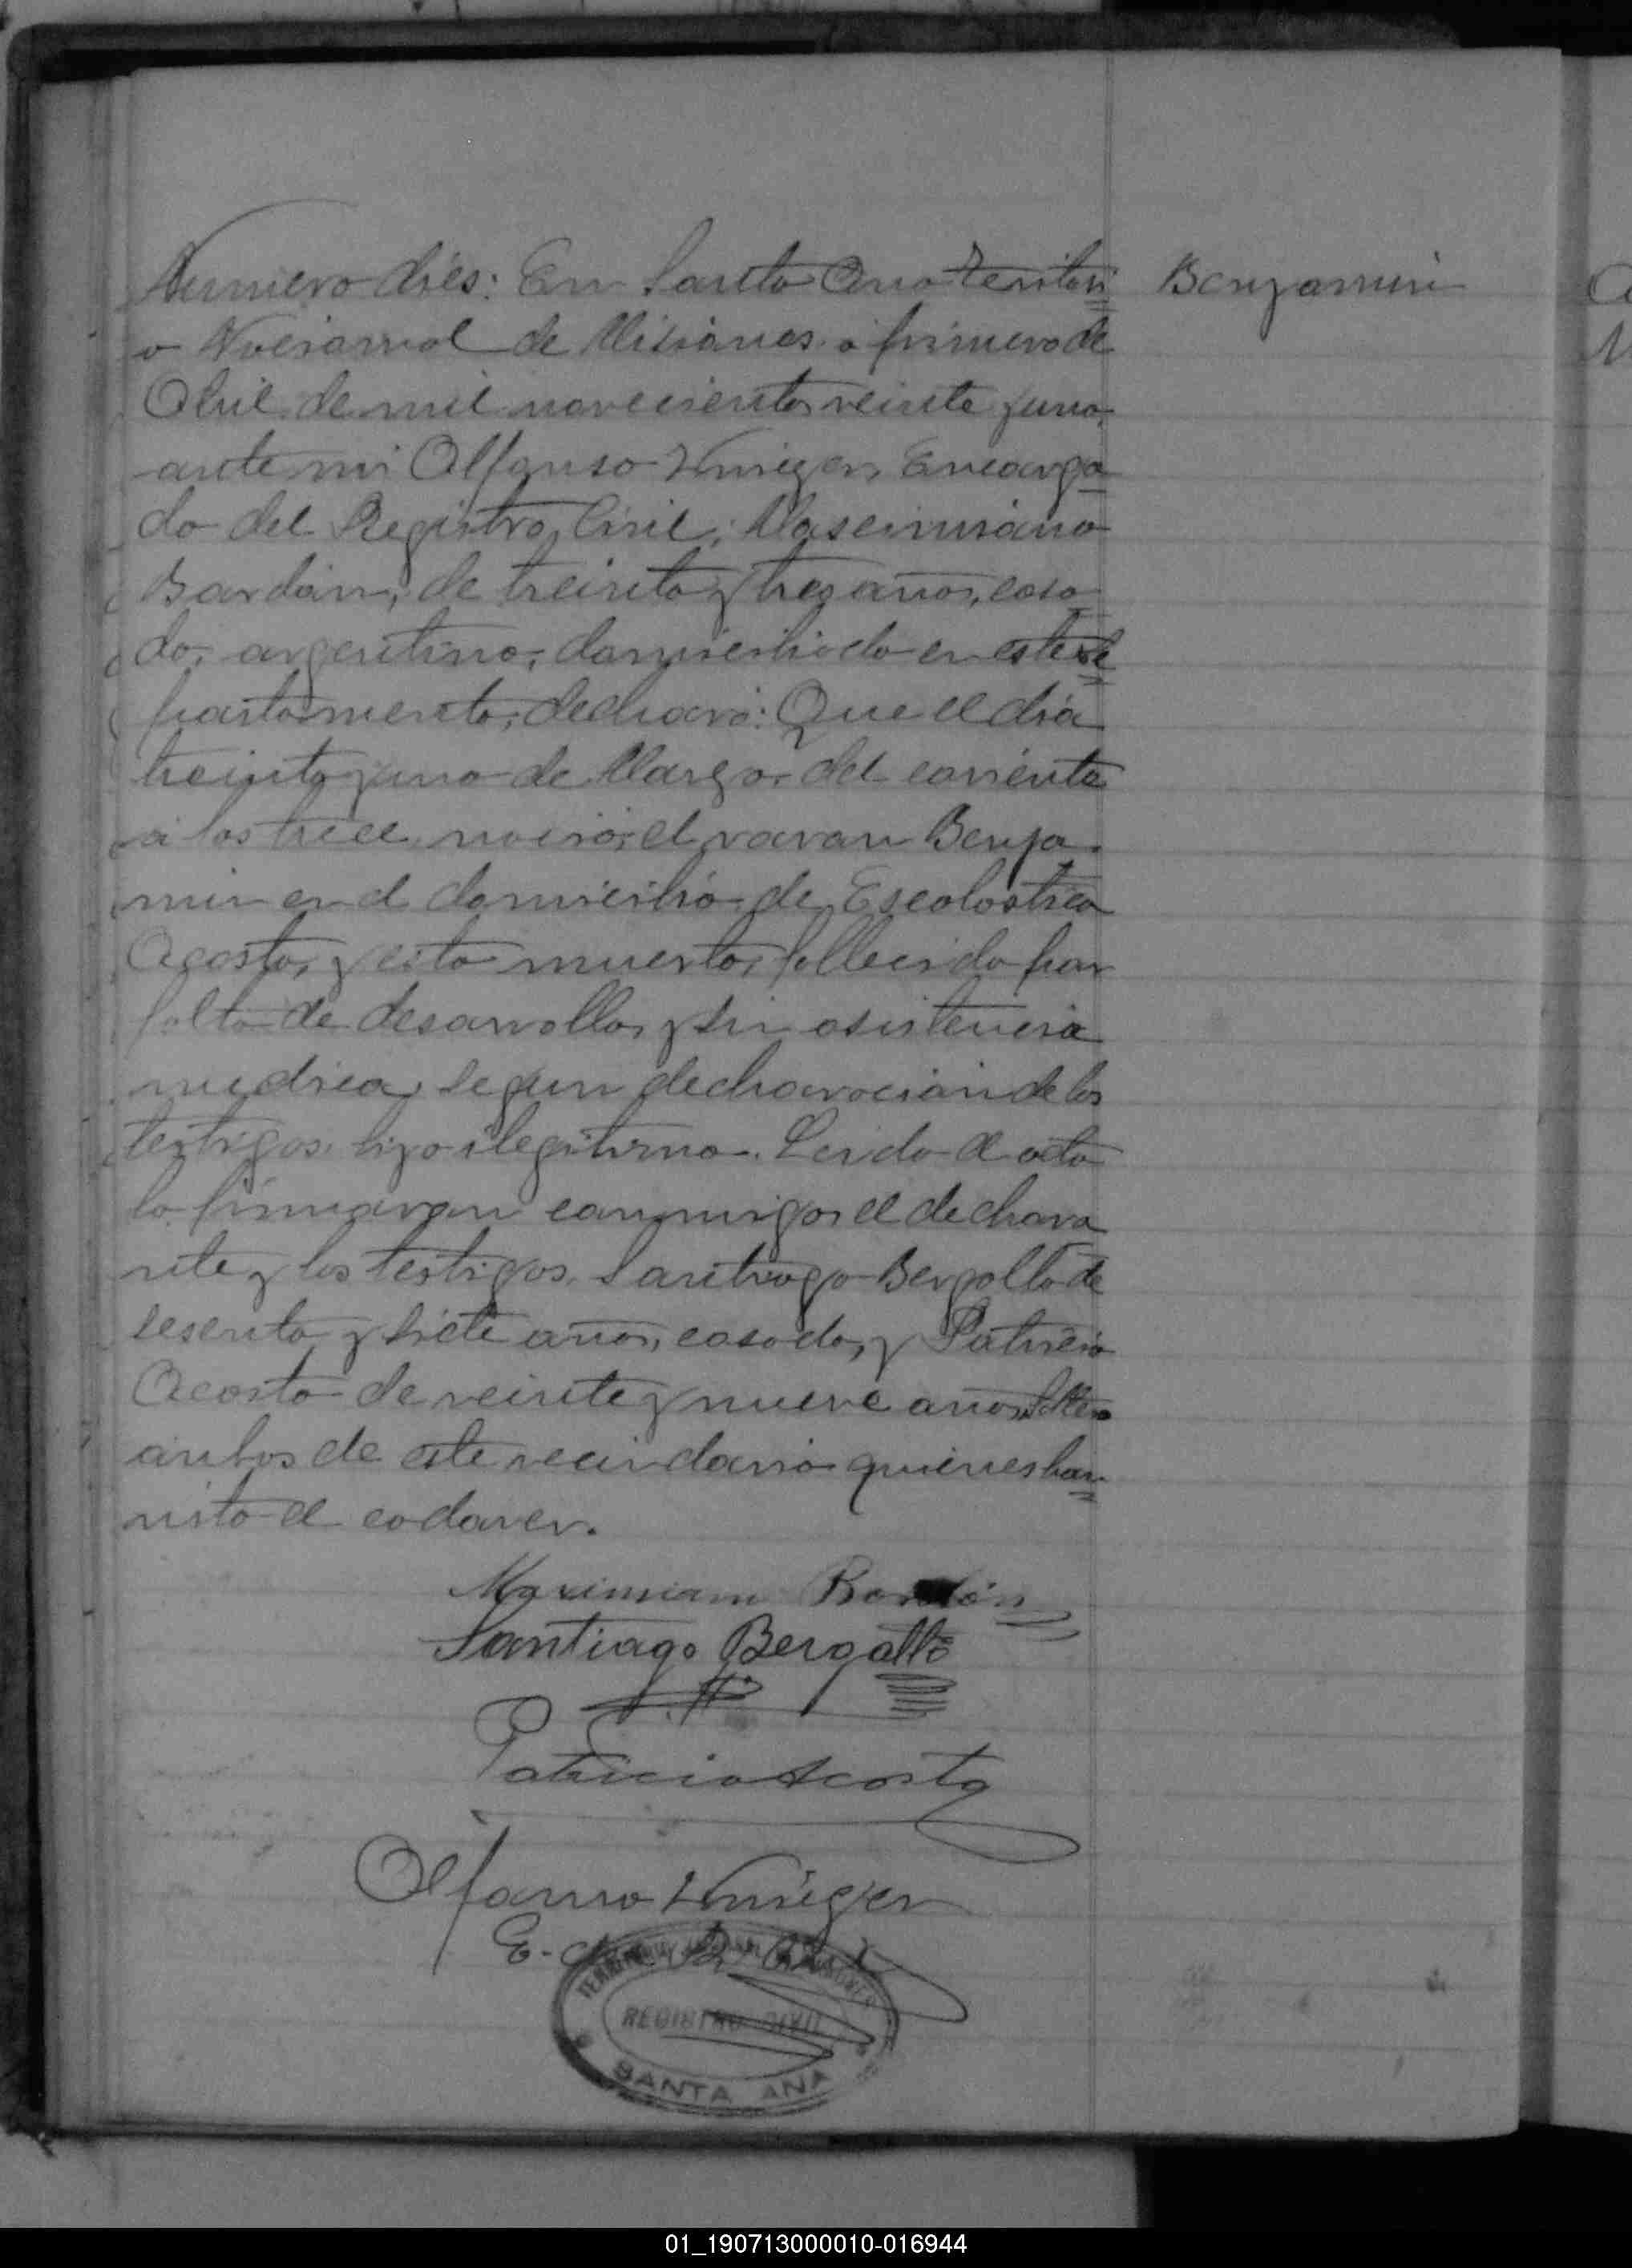 Numero diés: En Santa Ana Territori
o Nacional de Misiones a primero de
Abril de mil novecientos veinte y uno,
ante mi Alfonso Encarga
do del Registro Civil, Masimiano
Bardón, de treinta y tres años, casa
do, argentino, domiciliado en este De
partamento, declaró: Que el dia
treinta y uno de Marzo del corriente
a las trece nació el varon Benja
min en el domicilio de Escolastica
Acosta, y esta muerto, fallecido por
falta de desarrollo, y sin asistencia
medica, segun declaracion de los
testigos. hijo ilegitimo. Leida el acta
la firmaron conmigo, el declara
nte y los testigos. Santiago Bergallo de
sesenta y siete años, casado, y Patricio
Acosta de veinte y nueve años, soltero
ambos de este vecindario quienes han
visto el cadaver.
Benjamin
Maximiano Bordón
Santiago Bergallo
Patricio Acosta
Alfonso
E. del R. Civil
TERRITORIO NACIONAL DE MISIONES
REGISTRO CIVIL
SANTA ANA
01_190713000010-016944